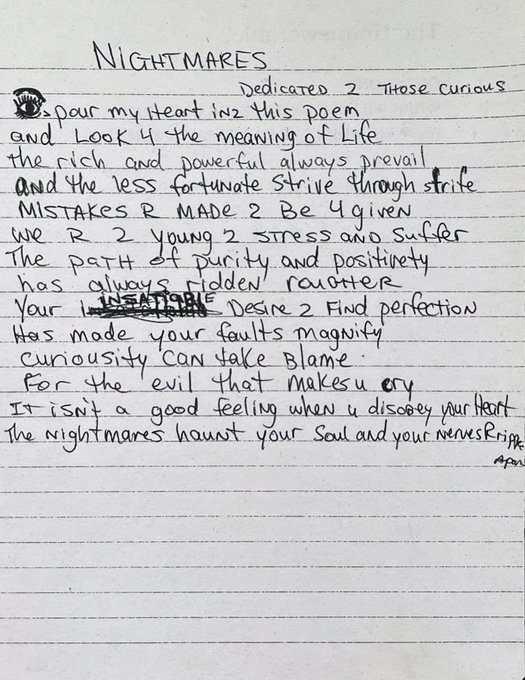 NIGHTMARES
DEDICATED 2 THOSE CURIOUS
pour my Heart in2 this poem
and LOOK 4 the meaning of Life
the rich and powerful always prevail
and the less fortunate strive through strife
MISTAKES R MADE 2 BE 4 given
we R 2 young 2 STRESS AND SUFFER
The PATH of purity and positivety
has always ridden ROUGHER
Your INSATIABLE DESIRE 2 FIND perfection
HAS made your faults magnify
CURIOUSITY CAN take BLAME
FOR the evil that makes u cry
It isn't a good feeling when u disobey your Heart
The Nightmares haunt your Soul and your nerves R ripped
Apart